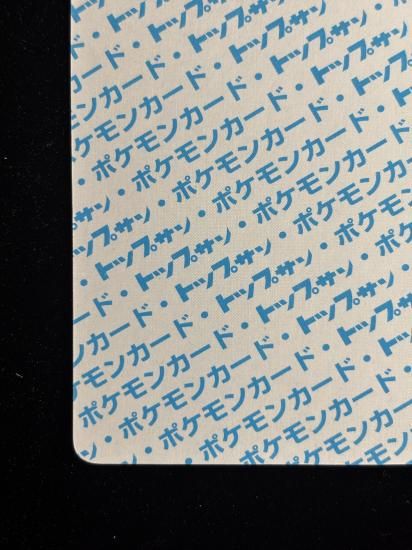 ド・トップサン
カード・トップサン・
ンカード・トップサン・
ケモンカード・トップサン・
・ポケモンカード・トップサン・
・ポケモンカード・トップサン
トップサン・ポケモンカード・トップ
トップサン・ポケモンカード・
・トップサン・ポケモンカード
ド・トップサン・ポケモンカ
カード・トップサン・ポケモン
ンカード・トップサン・ポケ
ポケモンカード・トップサン
・ポケモンカード・トップ
・ポケモンカード・
ポケモンカ